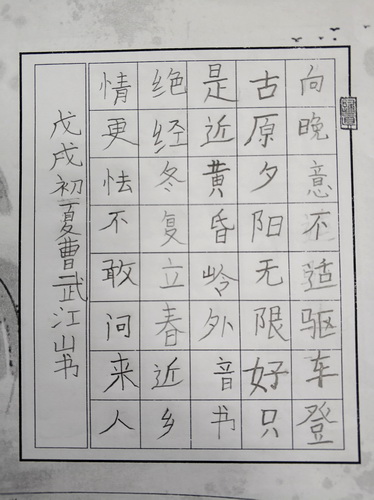 向晚意不适驱车登
古原夕阳无限好只
是近黄昏岭外音书
绝经冬复立春近乡
情更怯不敢问来人
戊戌初夏曹武江山书